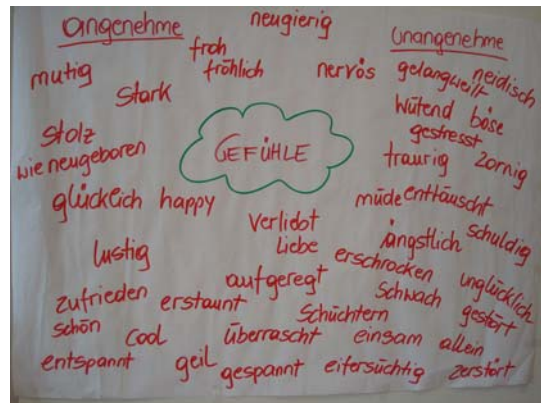 angenehme
neugierig
Unangenehme
froh
fröhlich
nervös
gelangweilt
neidisch
mutig
Stark
wütend böse
gestresst
Stolz
wie neugeboren
GEFÜHLE
traurig zornig
glücklich happy
müde enttäuscht
Verliebt
Liebe
ängstlich
schuldig
lustig
erschrocken
aufgeregt
unglücklich
Schwach
zufrieden
erstaunt
Schüchtern
gestört
schön
Cool
überrascht
einsam
allein
entspannt
geil
gespannt
eifersüchtig
zerstört